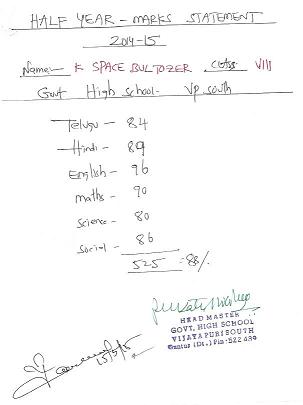 HALF YEAR - MARKS STATEMENT
2014-15
Name:- K SPACE BULTOZER class VIII
Govt High school- Vp south
Telugu - 84
Hindi - 89
English - 96
maths - 90
Science - 80
Social - 86
525 = 88%
HEAD MASTER
GOVT. HIGH SCHOOL
VIJAYAPURI SOUTH
Guntur (Dt.,) Pin: 522 439